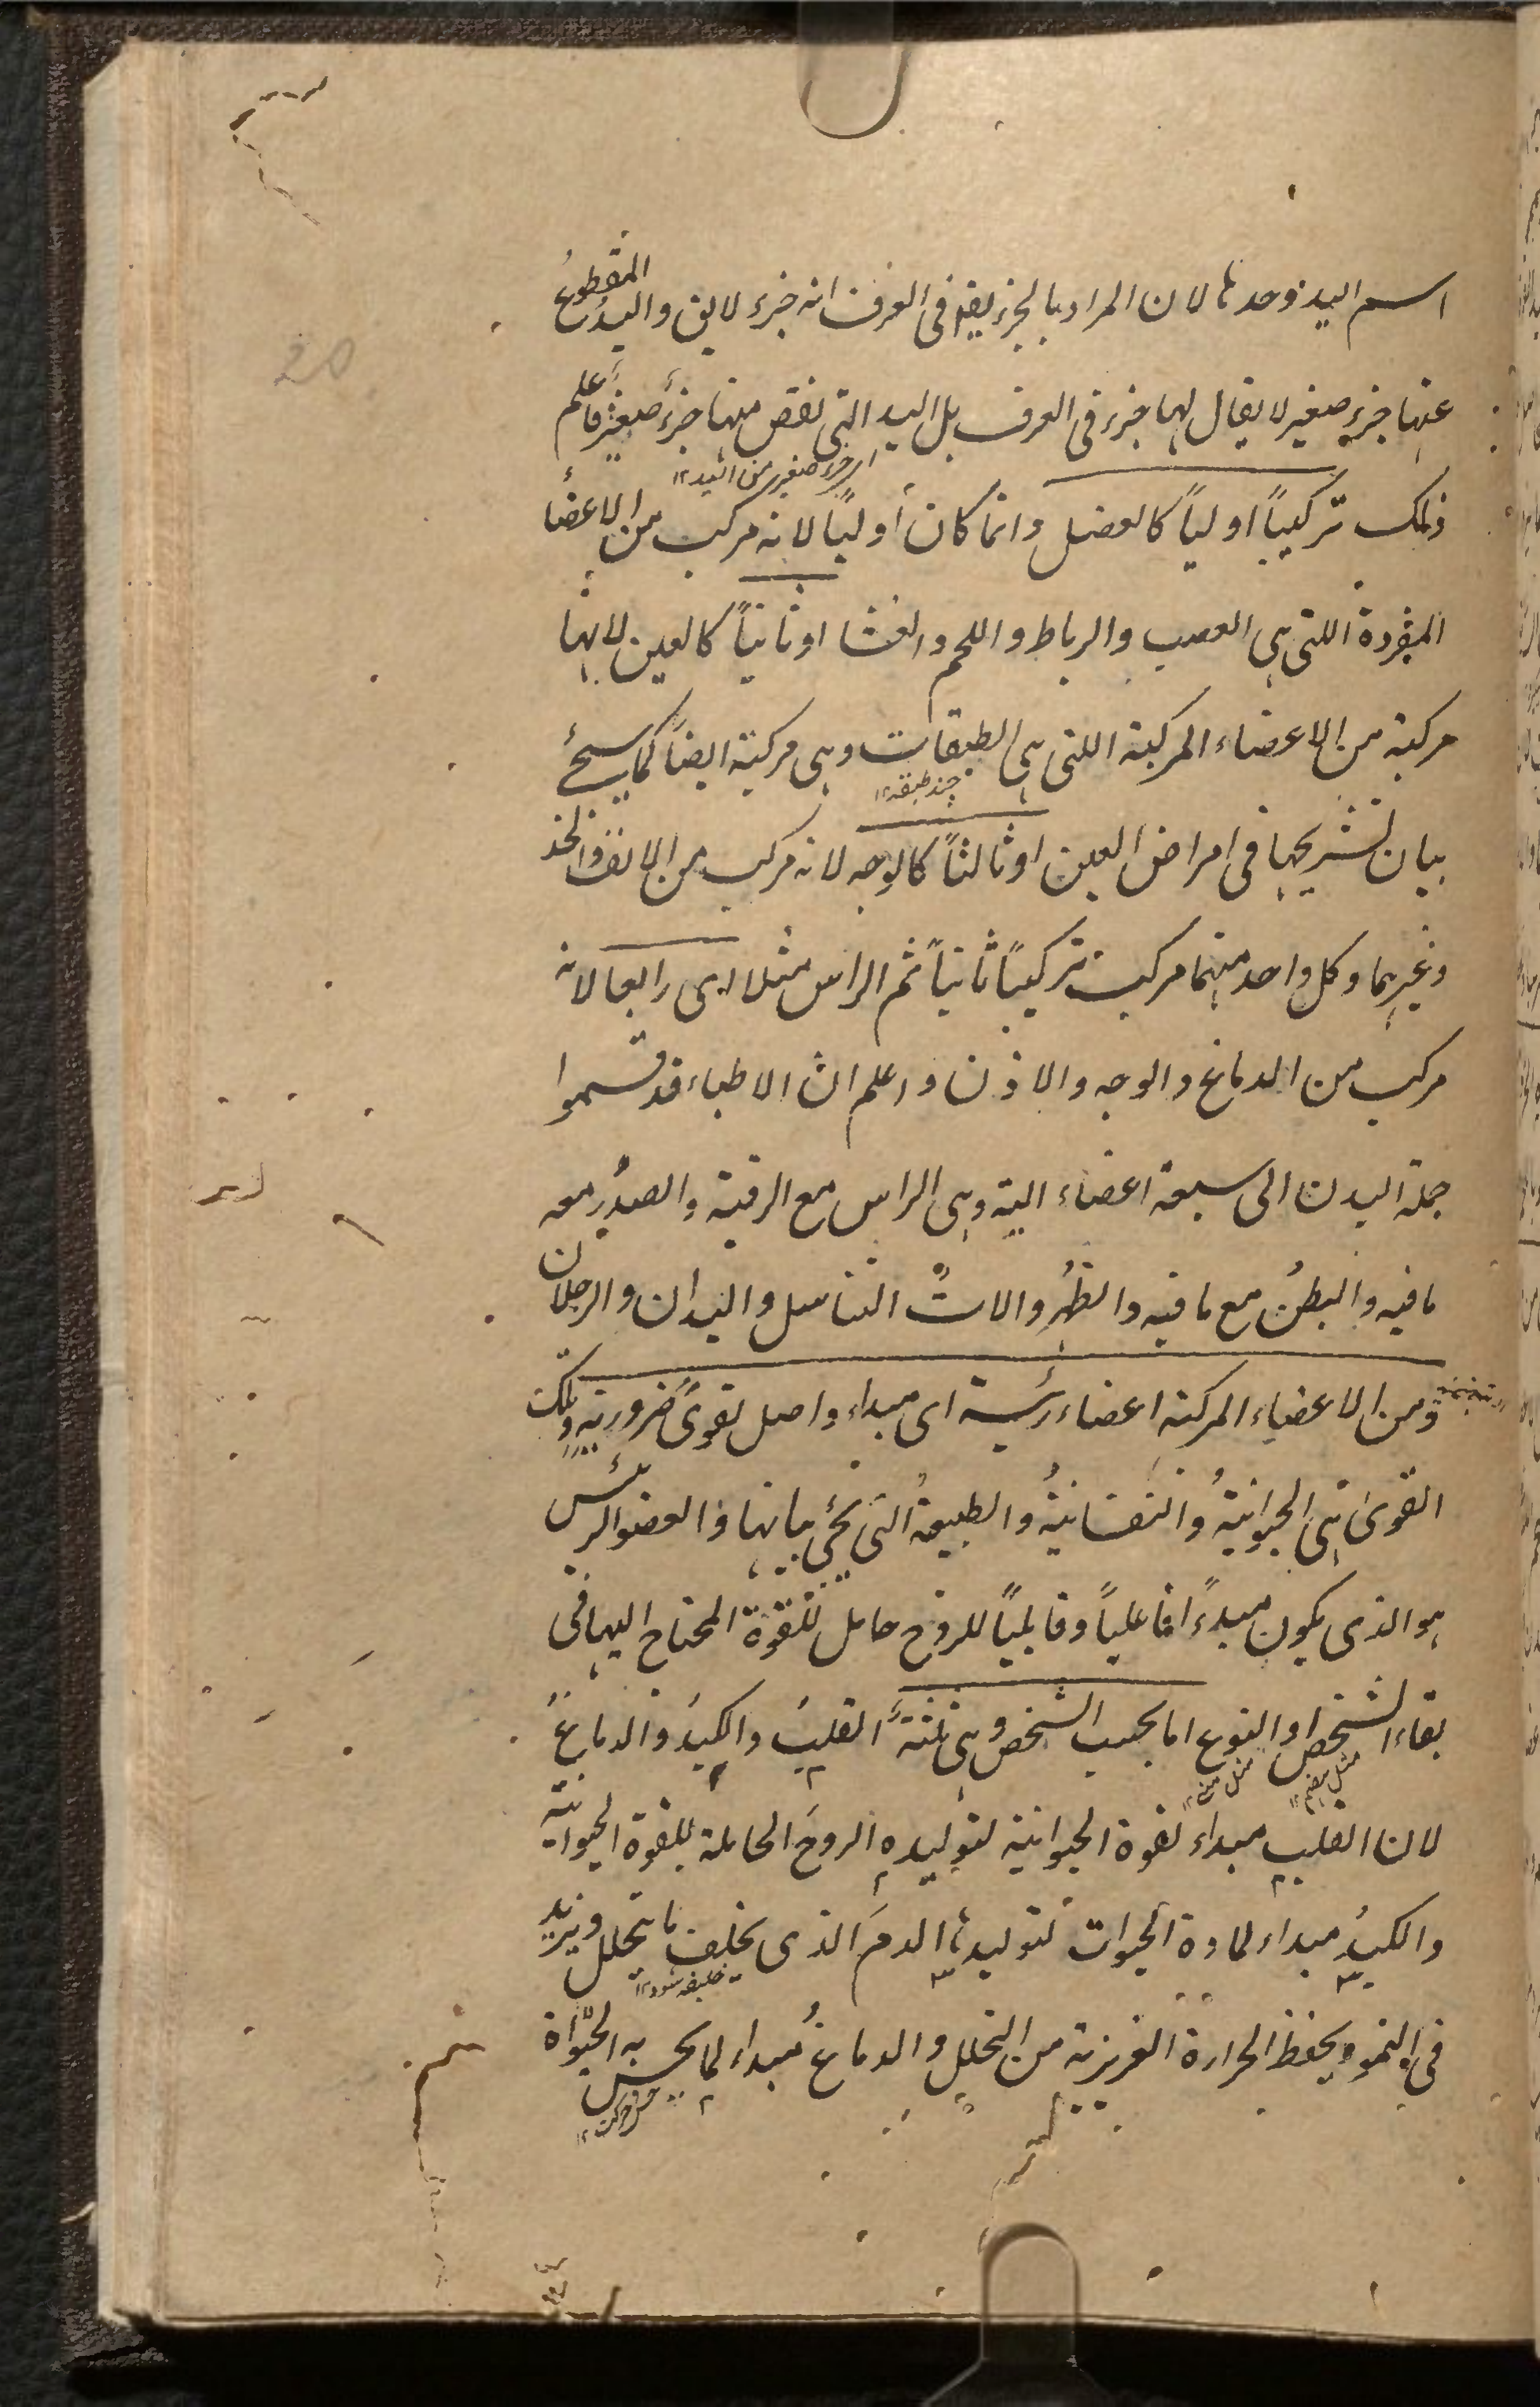 20
اسم اليد وحدها لان المراد بالجزء يفهم فى العرف انه جزء لايق واليد المقطوع
عنها جزء صغير لا يقال لها جزء فى العرف بل اليد التى نقص منها جزء صغير فاعلم
اى جزء صغير من اليد ١٢
ذلك تركيباً اولياً كالعضل وانما كان أولياً لانه مركب من الاعضاء
المفردة اللتى هى العصب والرباط واللحم والغشا او ثانياً كالعين لانها
مركبة من الاعضاء المركبة اللتى هى الطبقات وهى مركبة ايضاً كما سيجئ
چند طبقه ١٢
بيان تشريحها فى امراض العين او ثالثاً كالوجه لانه مركب من الانف والخد
وغيرهما وكل واحد منهما مركب تركيباً ثانياً ثم الراس مثلا اى رابعا لانه
مركب من الدماغ والوجه والاذن واعلم ان الاطباء قد قسموا
جملة البدن الى سبعة اعضاء الية وهى الراس مع الرقبة والصدر مع
ما فيه والبطن مع ما فيه والظهر والات التناسل واليدان والرجلان
ومن الاعضاء المركبة اعضاء رئيسة اى مبداء واصل لقوى ضرورية وتلك
القوى هى الحيوانية والنفسانية والطبيعة التى يجئ بيانها فالعضو الرئيس
هو الذى يكون مبدءً افاعلياً وقابلياً للروح حامل للقوة المحتاج اليها فى
بقاء الشخص او النوع اما بحسب الشخص وهى ثلثة القلب والكبد والدماغ
مثل هضم ١٢ مثل منى ١٢
لان القلب مبداء لقوة الحيوانية لتوليده الروح الحاملة للقوة الحيوانية
والكبد مبداء لمادة الحيوات لتوليدها الدم الذى يخلف ما تحلل ويزيد
خليفه شود ١٢
فى النمو ويحفظ الحرارة الغريزية من التحلل والدماغ مبداء لما يحس به الحيواة